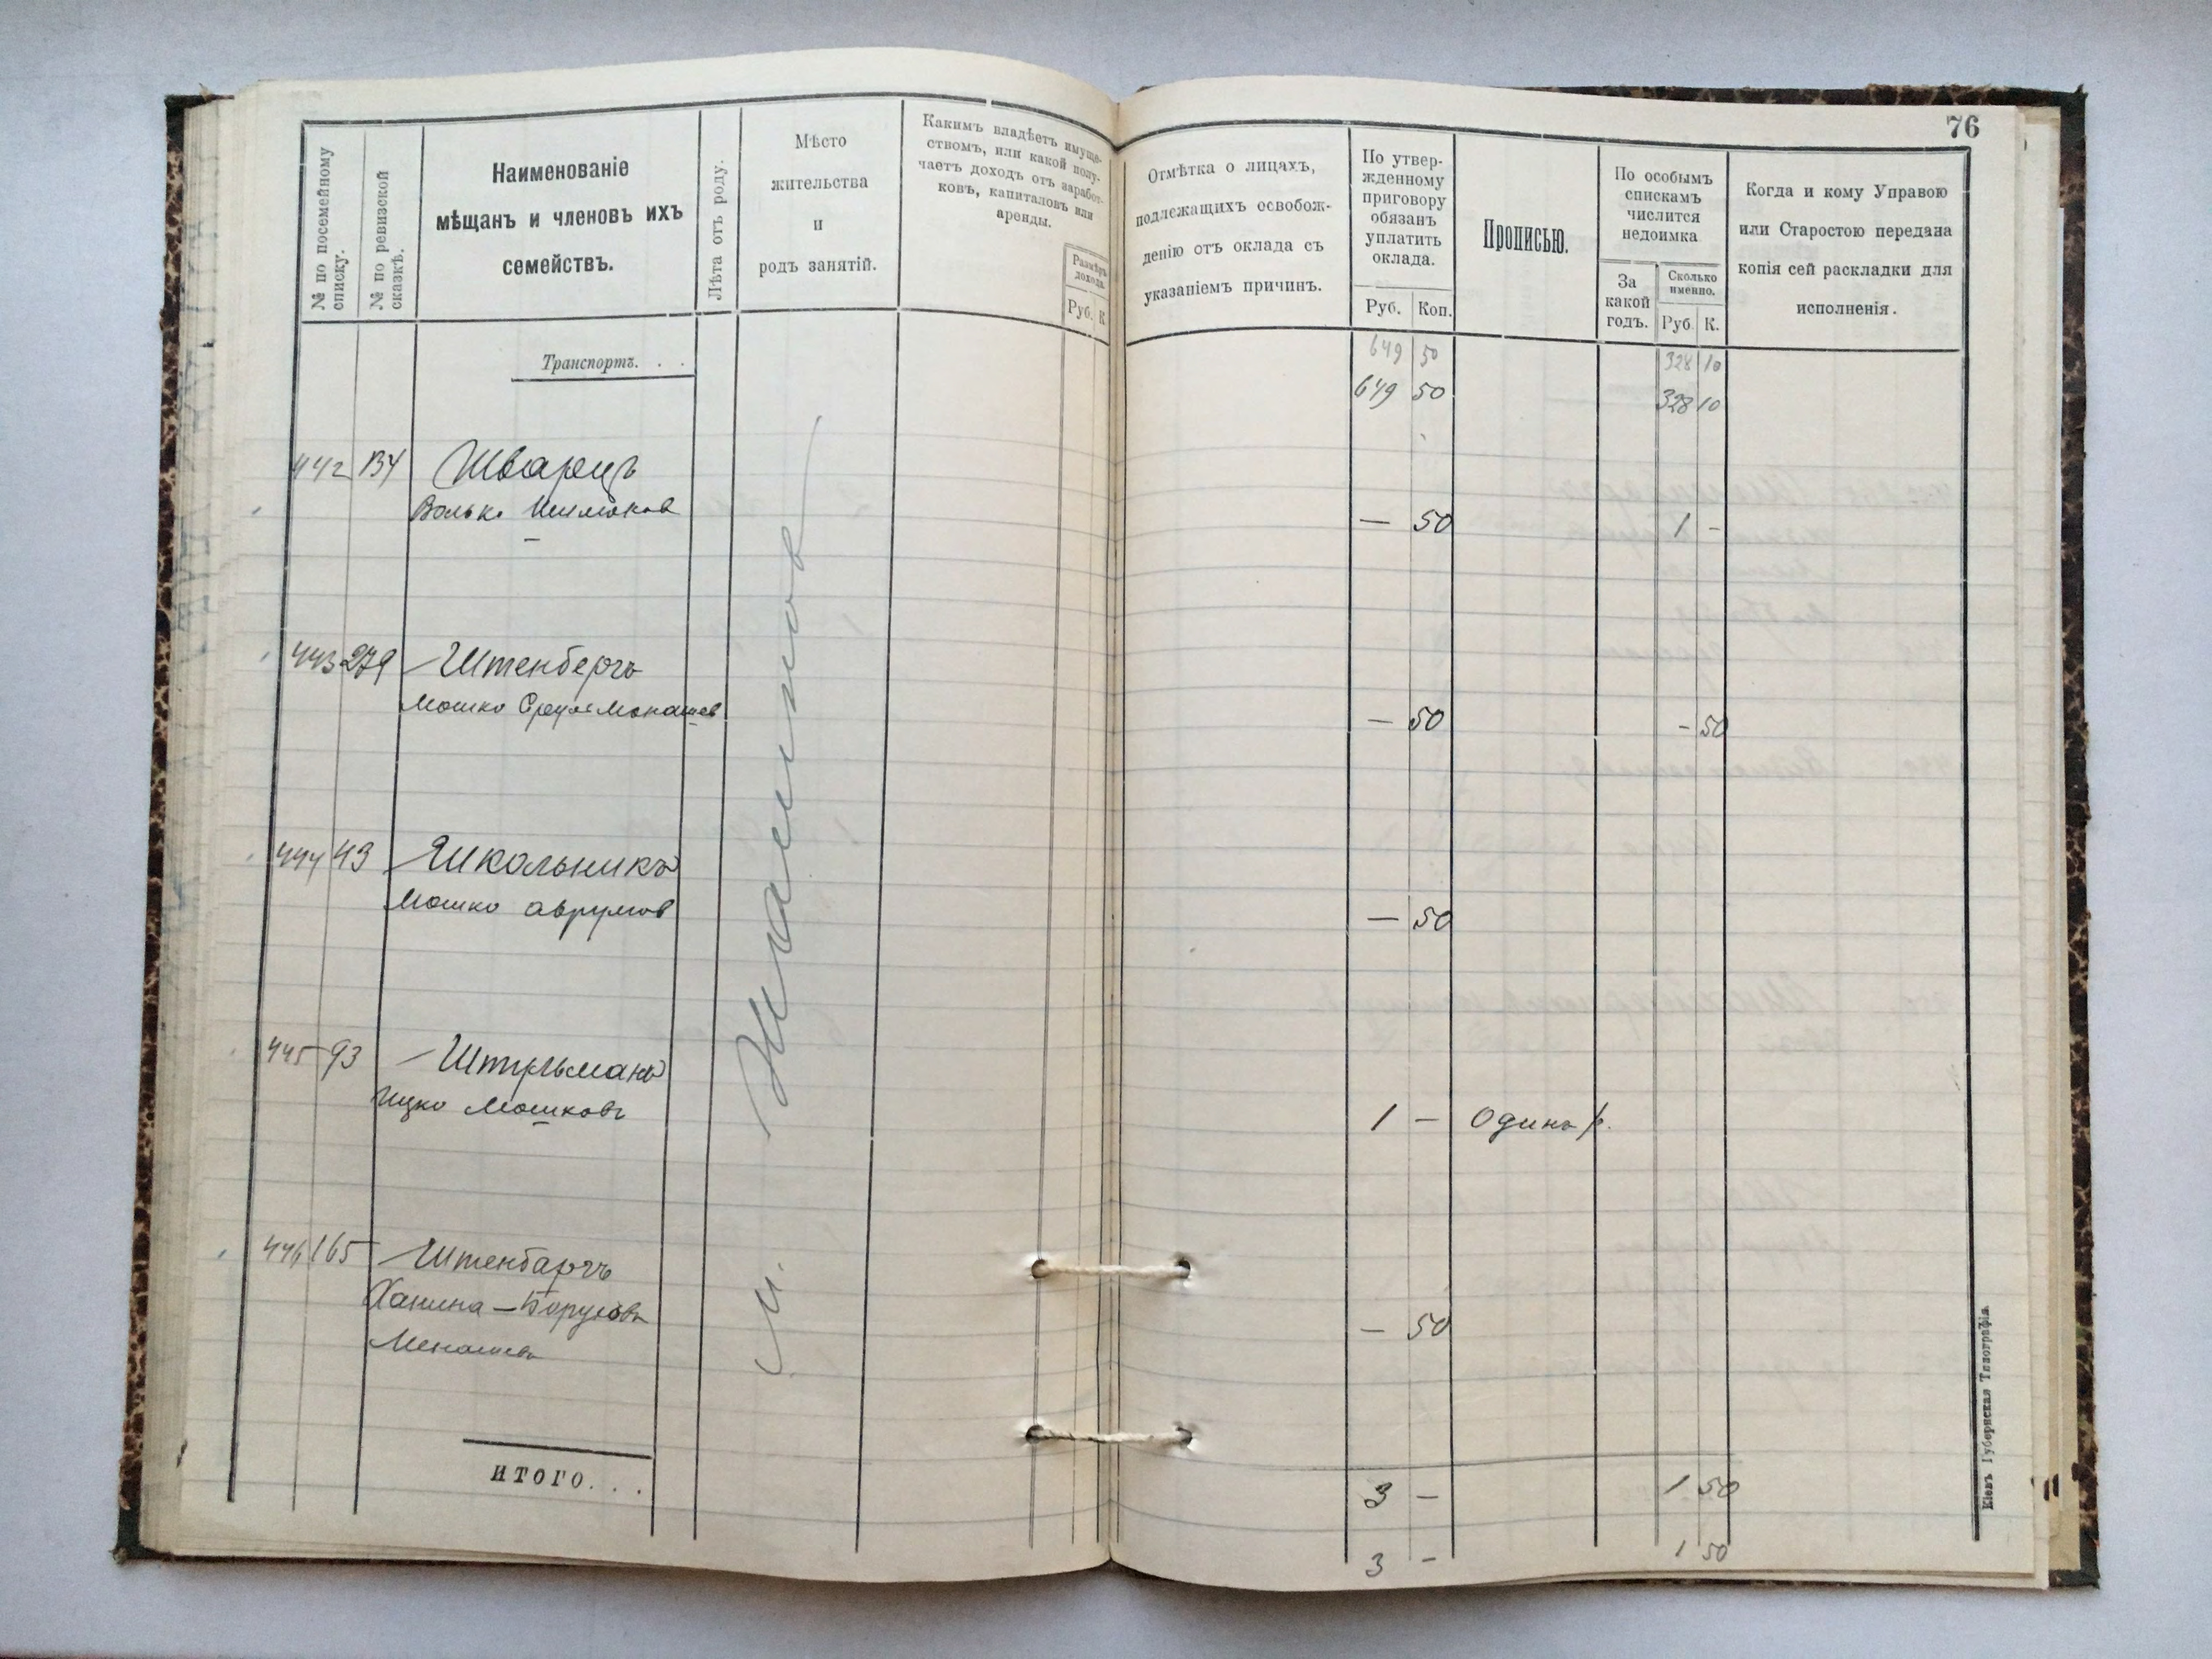 76
№ по посемейному списку.
№ по ревизской сказкѣ.
Наименованіе
мѣщанъ и членовъ ихъ
семействъ.
Лѣта отъ роду.
Мѣсто
жительства
и
родъ занятій.
Какимъ владѣетъ имуще-
ствомъ, или какой полу-
чаетъ доходъ отъ заработ-
ковъ, капиталовъ или
аренды.
Размѣръ
дохода.
Руб. К
Отмѣтка о лицахъ,
подлежащихъ освобож-
денію отъ оклада съ
указаніемъ причинъ.
По утвер-
жденному
приговору
обязанъ
уплатить
оклада.
Руб. Коп.
Прописью.
По особымъ
спискамъ
числится
недоимка
За
какой
годъ.
Сколько
именно.
Руб. К.
Когда и кому Управою
или Старостою передана
копія сей раскладки для
исполненія.
Транспортъ. . .
649 50 328 10
649 50 328 10
442 134 Шварцъ
Волько — 50 1 -
443 279 Штенбергъ
Мошко Монашев — 50 - 50
444 43 Школьникъ
Мошко Аврумов — 50
445 93 Штульманъ
Ицко Мошковъ 1 — Один р.
446 165 Штенбаргъ
Ханина-Боруховъ — 50
Менашев
м.
ИТОГО. . .
3 — 1 50
3 - 1 50
Кіевъ Губернская Типографія.